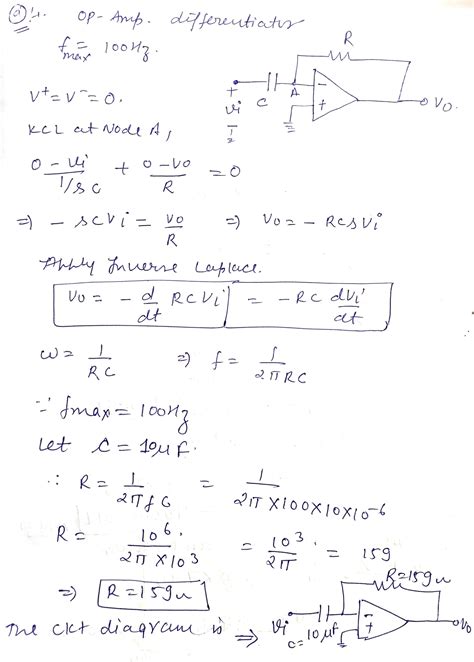 Q 4. OP-Amp. differentiator
f max = 100Hz.
R
A
C
Vi
Vo
V+ = V- = 0.
KCL at Node A,
0 - Vi / 1/sC + 0 - Vo / R = 0
=> - sCVi = Vo / R => Vo = - RCsVi
Apply Inverse Laplace.
Vo = - d/dt RCVi = - RC dVi/dt
ω = 1/RC => f = 1/2πRC
∵ fmax = 100Hz
Let C = 10μF.
∴ R = 1/2πfC = 1/2π×100×10×10^-6
R = 10^6 / 2π×10^3 = 10^3 / 2π = 159
=> R = 159Ω
R=159Ω
The ckt diagram is => Vi
C=10μF
Vo